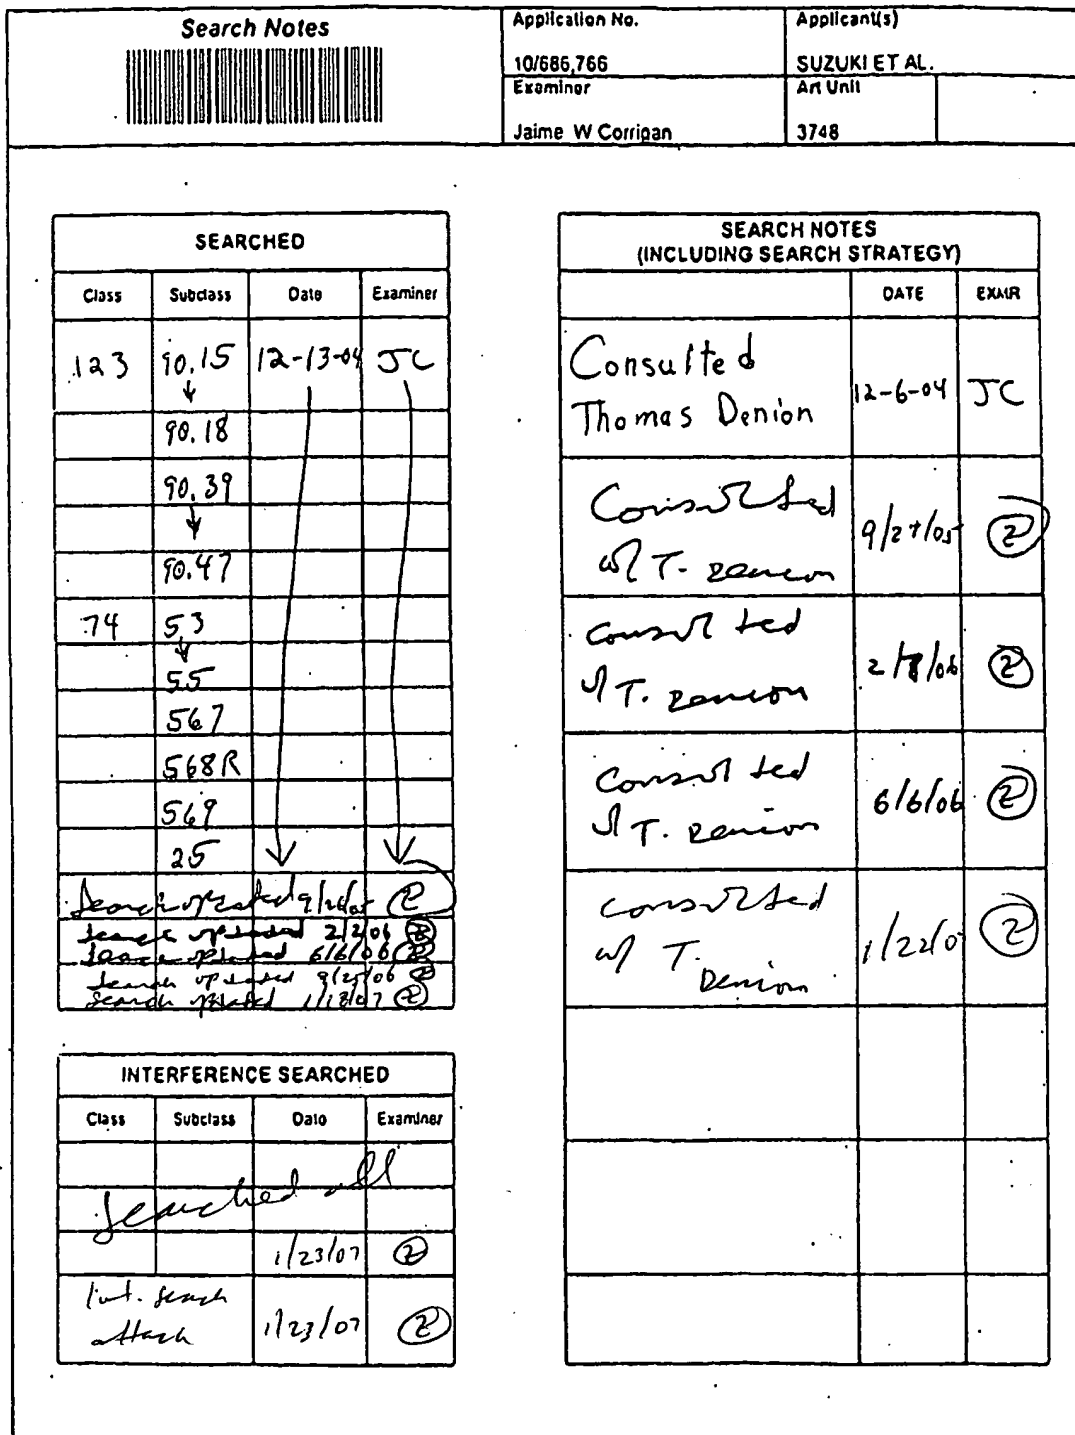 Search Notes
Application No.
10/686,766
Applicant(s)
SUZUKI ET AL.
Examiner
Jaime W Corrigan
Art Unit
3748
SEARCHED
Class Subclass Date Examiner
123 90.15 12-13-04 JC
↓
90.18
90.39
↓
90.47
74 53
↓
55
567
568R
569
25
Search updated 9/26/05 Z
Search updated 2/2/06 Z
Search updated 6/6/06 Z
Search updated 9/25/06 Z
Search updated 1/18/07 Z
INTERFERENCE SEARCHED
Class Subclass Date Examiner
Searched all
1/23/07 Z
Int. search
attach 1/23/07 Z
SEARCH NOTES
(INCLUDING SEARCH STRATEGY)
DATE EXMR
Consulted
Thomas Denion 12-6-04 JC
Consulted
w/ T. Denion 9/27/05 Z
Consulted
w/ T. Denion 2/7/06 Z
Consulted
w/ T. Denion 6/6/06 Z
Consulted
w/ T.
Denion 1/22/0 Z